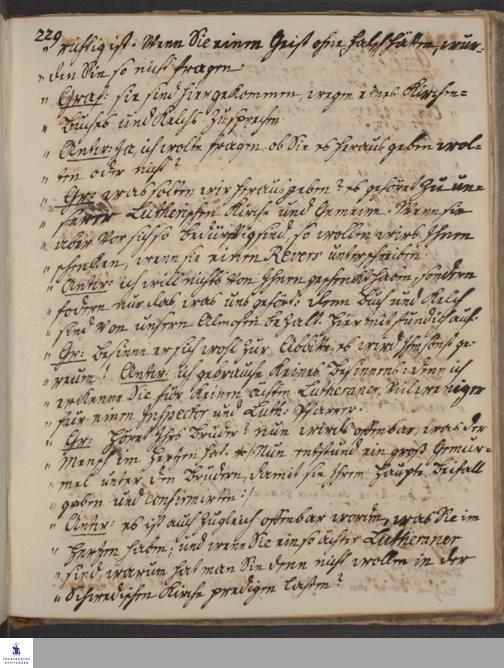 229
„ richtig ist. Wenn Sie einen Geist ohne falsch hätten, wür-
„ den Sie so nicht fragen.
„ Graf: sie sind hier gekommen, wegen eines Kirchen-
„ Buches und Kelchs zu sprechen.
„ Antw: Ja, ich wolte fragen, ob Sie es heraus geben wol-
„ ten oder nicht?
„ Gr: was solten wir heraus geben? es gehöret zu un-
„ serer Lutherischen Kirche und Gemeine. Wenn sie
„ aber vor sich so bedürftig sind, so wollen wirs Ihnen
„ schenken, wenn sie einen Revers unterschreiben.
„ Antw: ich will nichts von Ihnen geschenkt haben, sondern
„ fodere nur das, was uns gehört: denn Buch und Kelch
„ sind von unsern Almosen bezahlt. hiermit stund ich auf.
„ Gr: besinne er sich wohl zur Abbitte, es wird ihn sonst ge-
„ reuen! Antw: ich gebrauche keines besinnens: denn ich
„ erkenne Sie für keinen ächten Lutheraner, vielweniger
„ für einen Inspector und Luth: Pfarrer.
„ Gr: höret Ihrs Brüder? nun wirds offenbar, was der
„ Mensch im Herzen hat. Nun entstund ein groß Gemur-
„ mel unter den Brüdern, damit sie Ihrem Haupte Beifall
„ gaben und confirmirten :/
„ Antw: es ist auch zugleich offenbar worden, was Sie im
„ Herzen haben; und wenn Sie ein so ächter Lutheraner
„ sind, warum hat man Sie denn nicht wollen in der
„ Schwedischen Kirche predigen lassen?
FRANCKESCHE
STIFTUNGEN